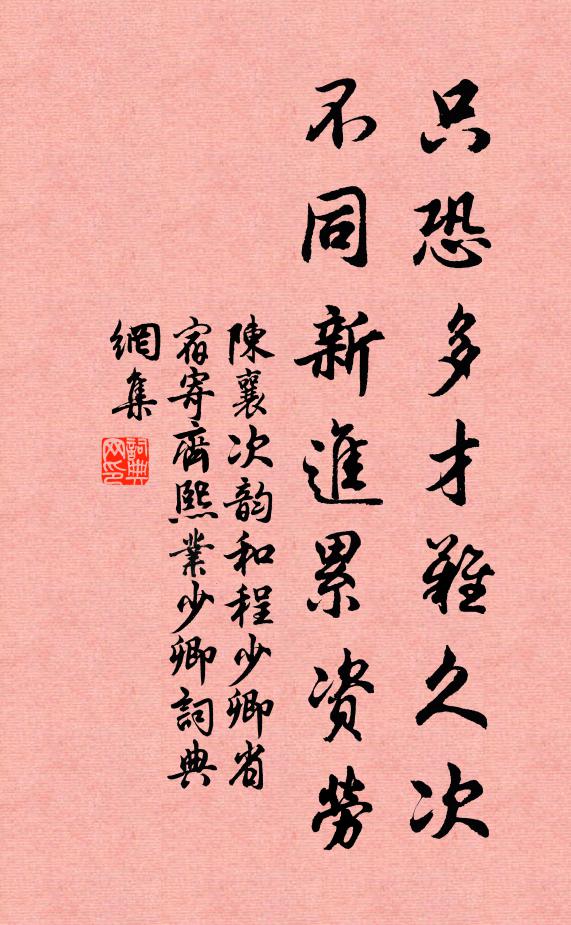 只恐多才難久次
不同新進累资勞
陳襄次韵和程少卿省
宿寄齊熙業少卿詞典
網集
詞典
网印